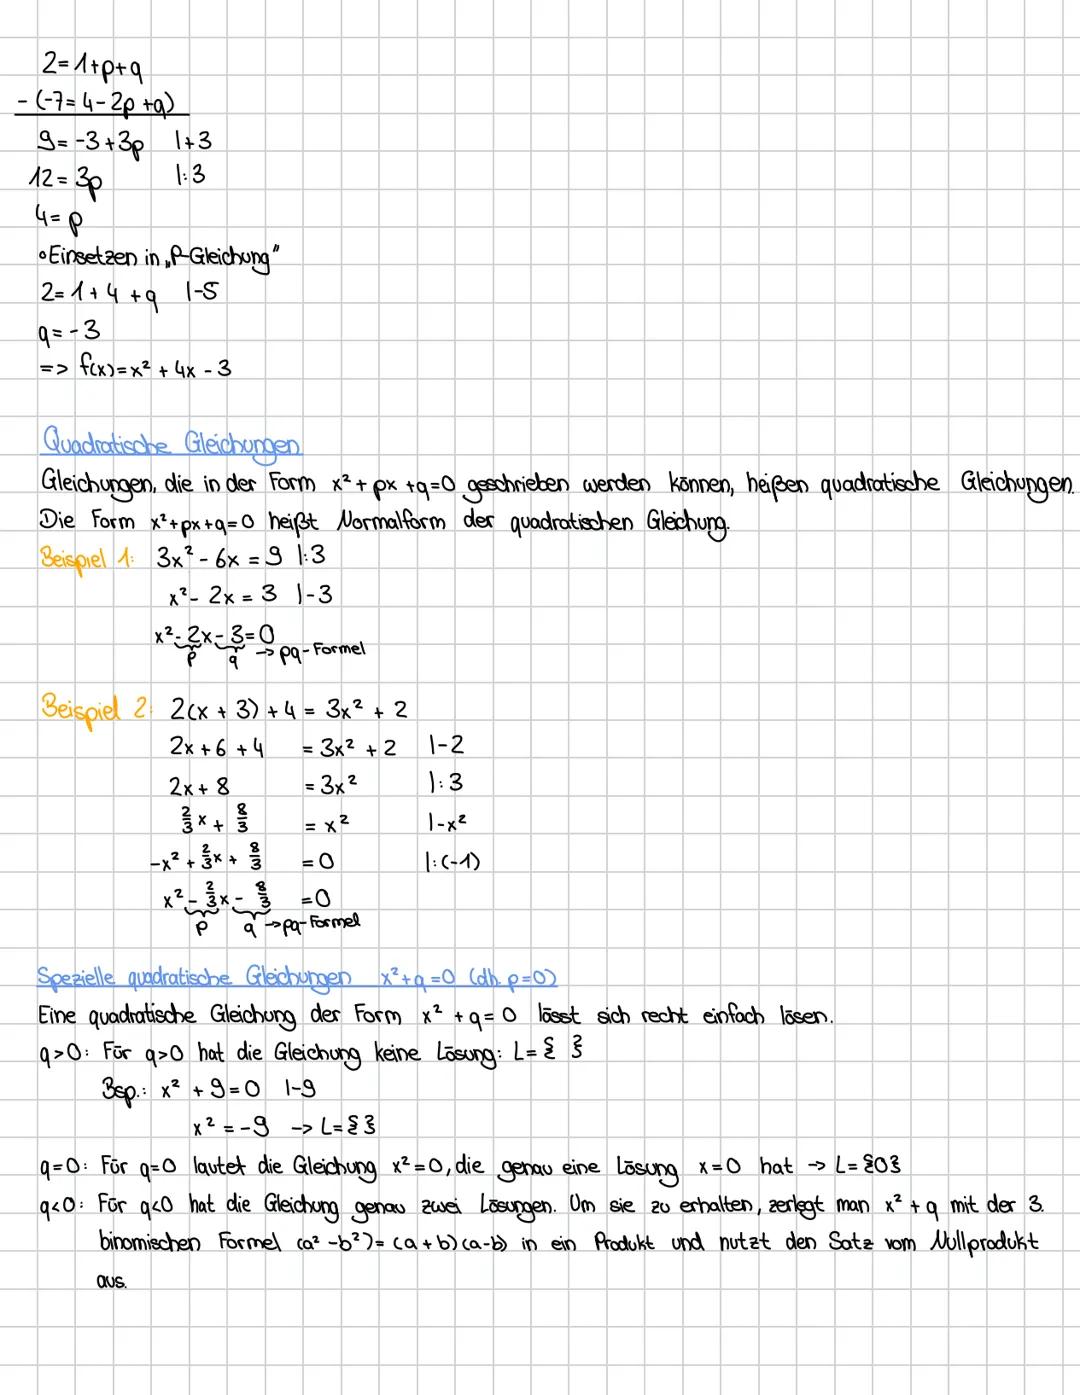 2=1+p+q
-(-7=4-2p+q)
9=-3+3p |+3
12=3p |:3
4=p
• Einsetzen in „P-Gleichung"
2=1+4+q |-5
q=-3
=> f(x)=x²+4x-3
Quadratische Gleichungen
Gleichungen, die in der Form x²+px+q=0 geschrieben werden können, heißen quadratische Gleichungen.
Die Form x²+px+q=0 heißt Normalform der quadratischen Gleichung.
Beispiel 1: 3x²-6x=9 |:3
x²-2x=3 |-3
x²-2x-3=0
p q -> pq-Formel
Beispiel 2: 2(x+3)+4=3x²+2
2x+6+4 =3x²+2 |-2
2x+8 =3x² |:3
2/3x+8/3 =x² |-x²
-x²+2/3x+8/3 =0 |:(-1)
x²-2/3x-8/3 =0
p q -> pq-Formel
Spezielle quadratische Gleichungen x²+q=0 (dh. p=0)
Eine quadratische Gleichung der Form x²+q=0 lässt sich recht einfach lösen.
q>0: Für q>0 hat die Gleichung keine Lösung: L={ }
Bsp.: x²+9=0 |-9
x²=-9 -> L={}
q=0: Für q=0 lautet die Gleichung x²=0, die genau eine Lösung x=0 hat -> L={0}
q<0: Für q<0 hat die Gleichung genau zwei Lösungen. Um sie zu erhalten, zerlegt man x²+q mit der 3.
binomischen Formel (a²-b²)=(a+b)(a-b) in ein Produkt und nutzt den Satz vom Nullprodukt
aus.